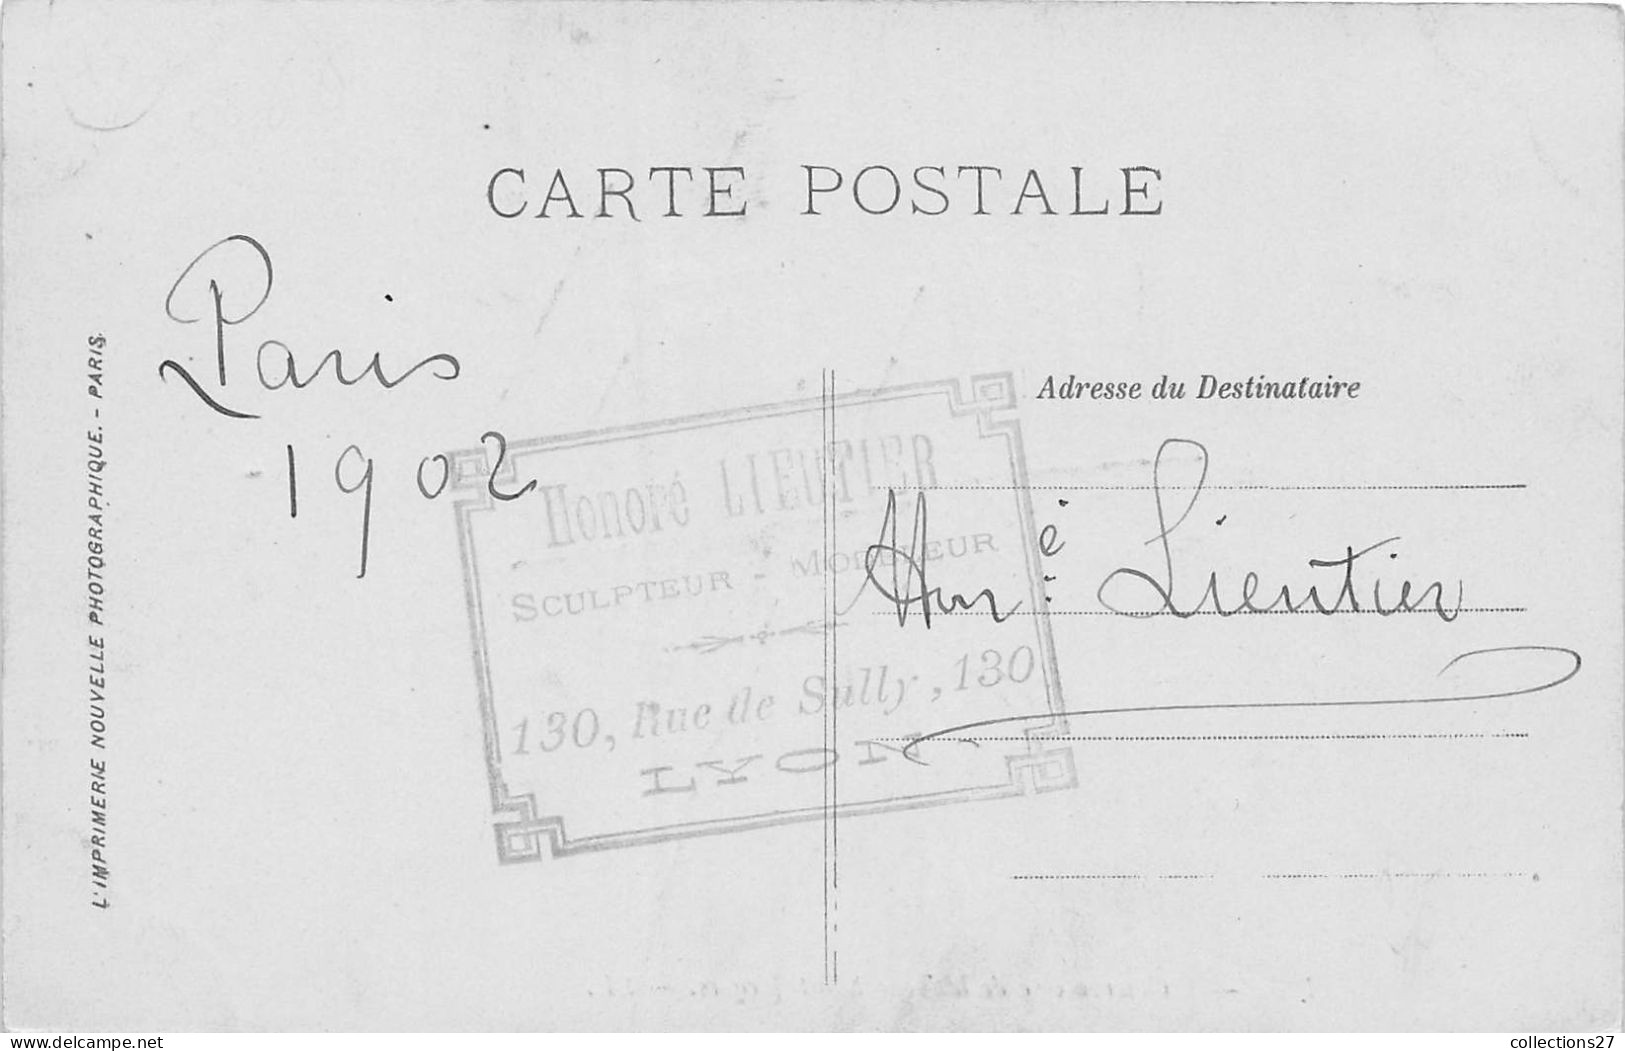 CARTE POSTALE
L'IMPRIMERIE NOUVELLE PHOTOGRAPHIQUE. - PARIS.
Paris
1902
Honoré LIEUTIER
SCULPTEUR - MODELEUR
130, Rue de Sully, 130
LYON
Adresse du Destinataire
Hon.é Lieutier
www.delcampe.net
collections27